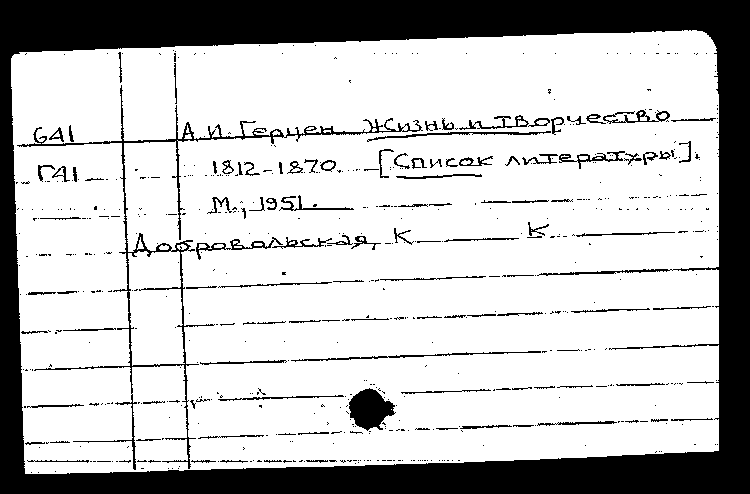 641 А.И. Герцен Жизнь и творчество
Г41 1812-1870. [Список литературы].
М., 1951.
Добровольская, К К